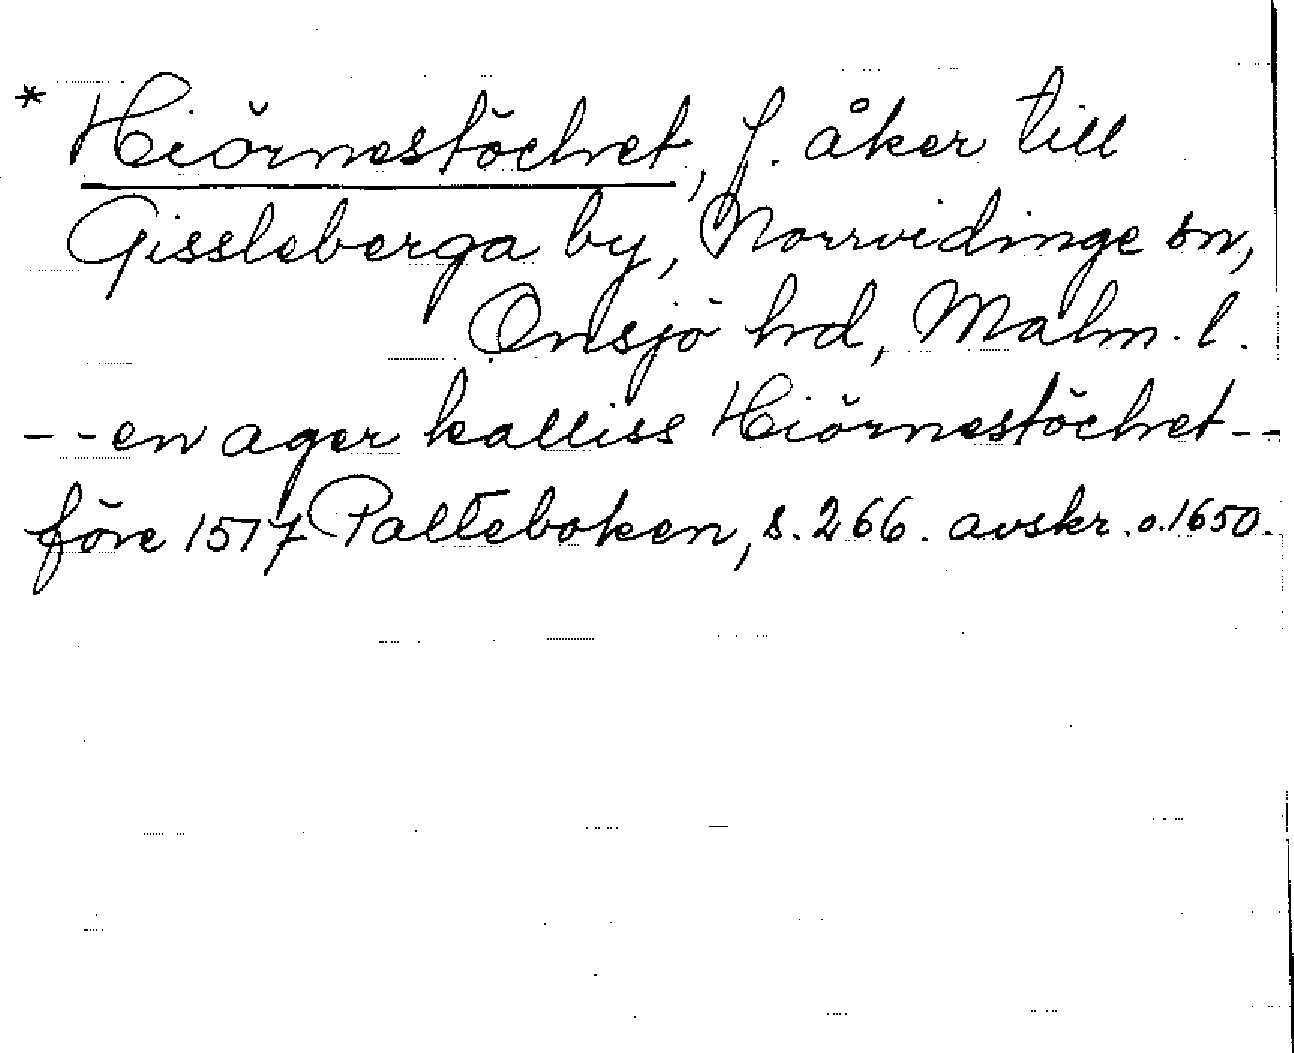 * Hiörnestöchet, f. åker till
Gissleberga by, Norrvidinge sn,
Onsjö hd, Malm. l.
- - en ager kalliss Hiörnestöchet - -
före 1517 Palteboken, s. 266. avskr. o. 1650.